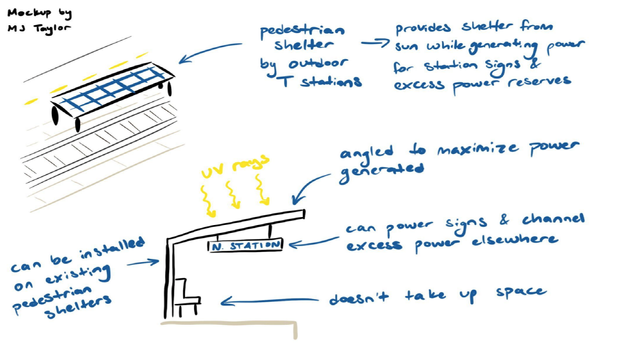 Mockup by
MJ Taylor
pedestrian
shelter
by outdoor
T stations
provides shelter from
sun while generating power
for station signs &
excess power reserves
UV rays
angled to maximize power
generated
N. STATION
can power signs & channel
excess power elsewhere
can be installed
on existing
pedestrian
shelters
doesn't take up space